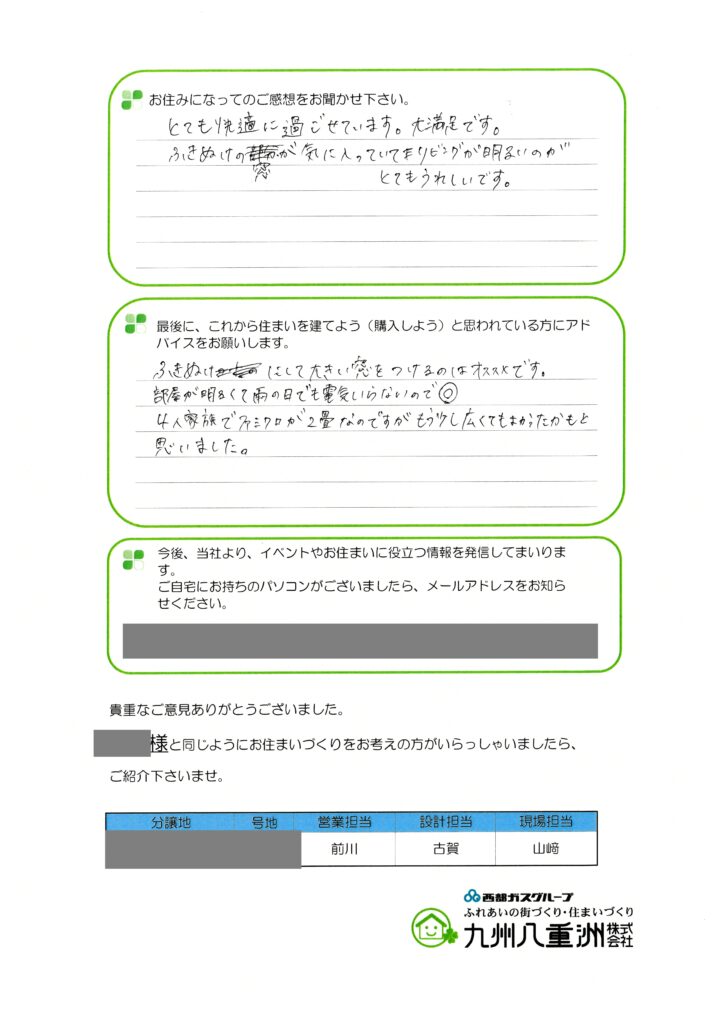 お住みになってのご感想をお聞かせ下さい。
とても快適に過ごせています。大満足です。
ふきぬけの窓が気に入っていてリビングが明るいのが
とてもうれしいです。
最後に、これから住まいを建てよう（購入しよう）と思われている方にアド
バイスをお願いします。
ふきぬけにして大きい窓をつけるのはオススメです。
部屋が明るくて雨の日でも電気いらないので◎
4人家族でファミクロが2畳なのですがもう少し広くてもよかったかもと
思いました。
今後、当社より、イベントやお住まいに役立つ情報を発信してまいりま
す。
ご自宅にお持ちのパソコンがございましたら、メールアドレスをお知ら
せください。
貴重なご意見ありがとうございました。
様と同じようにお住まいづくりをお考えの方がいらっしゃいましたら、
ご紹介下さいませ。
分譲地 号地 営業担当 設計担当 現場担当
前川 古賀 山﨑
西部ガスグループ
ふれあいの街づくり・住まいづくり
九州八重洲株式会社